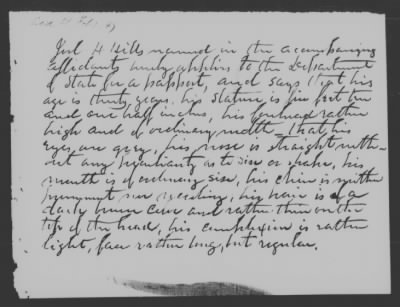 H Hills named in the accompanying
affidavits hereby applies to the Department
of State for a passport, and says that his
age is thirty years, his stature is five feet ten
and one half inches, his forehead rather
high and of ordinary width = that his
eyes are grey, his nose is straight with-
out any peculiarity as to size or shape, his
mouth is of ordinary size, his chin is neither
prominent nor receding, his hair is of a
dark brown color and rather thin on the
top of the head, his complexion is rather
light, face rather long, but regular.